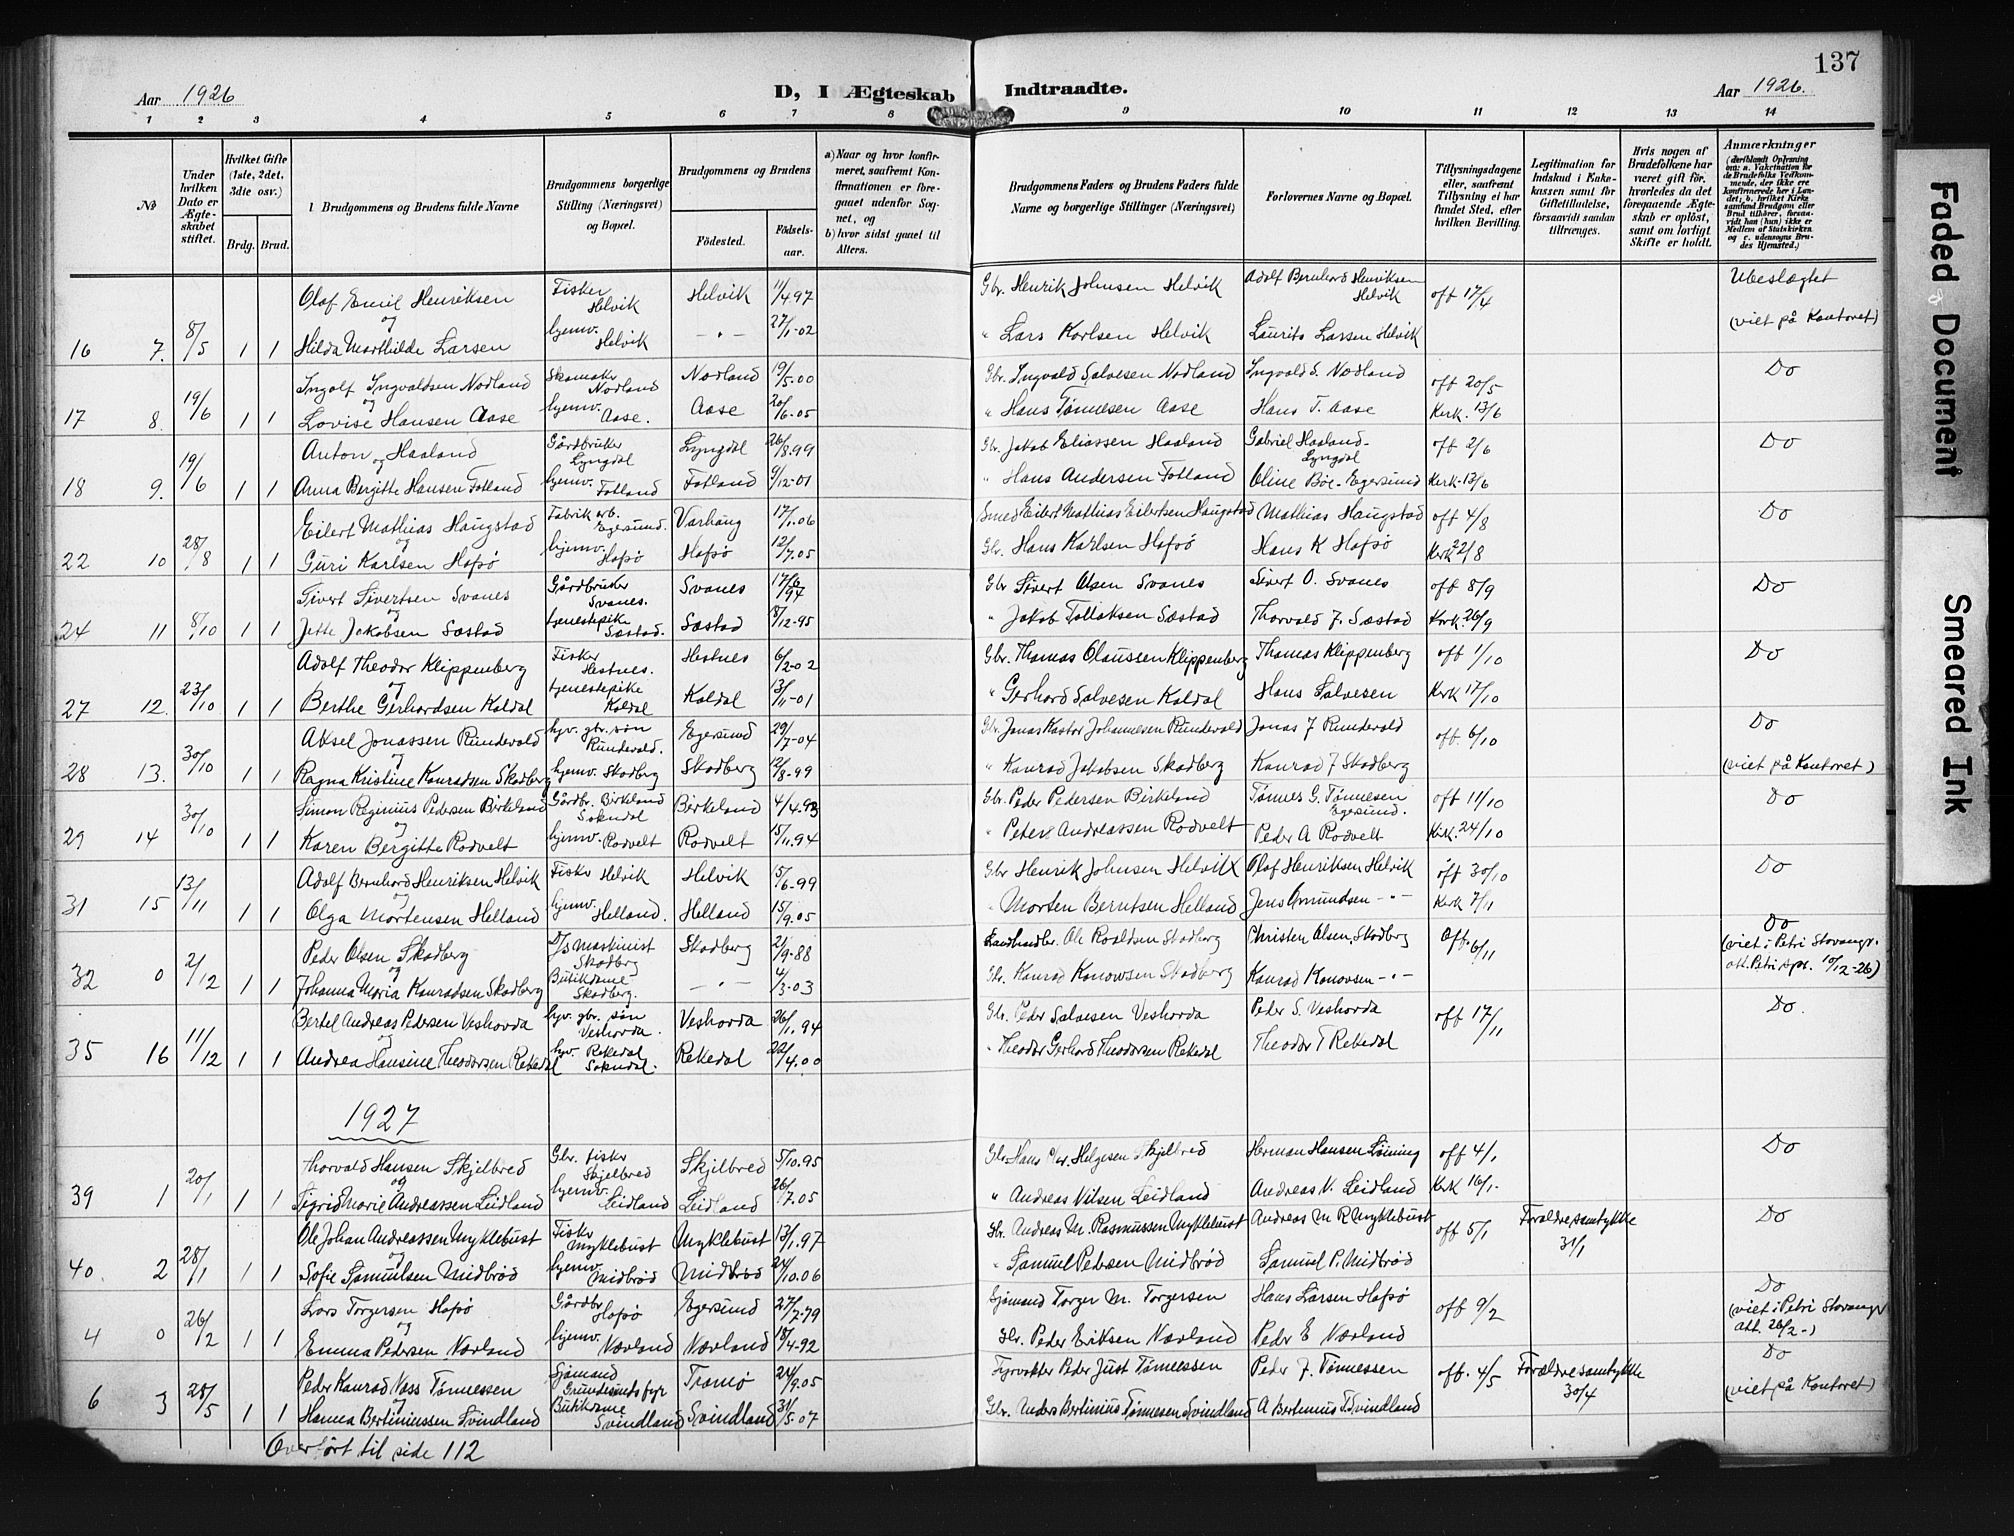 137
Aar 1926 D, I Ægteskab Indtraadte. Aar 1926.
1 2 3 4 5 6 7 8 9 10 11 12 13 14
№
Under hvilken Dato er Ægte-skabet stiftet.
Hvilket Gifte (1ste, 2det, 3die osv.)
Brdg. Brud.
Brudgommens og Brudens fulde Navne
Brudgommens borgerlige Stilling (Næringsvei) og Bopæl.
Brudgommens og Brudens
Födested. Födsels-aar.
a) Naar og hvor konfir-meret, saafremt Kon-firmationen er fore-gaaet udenfor Sog-net, og
b) hvor sidst gaaet til Alters.
Brudgommens Faders og Brudens Faders fulde Navne og borgerlige Stillinger (Næringsvei)
Forlovernes Navne og Bopæl.
Tillysningsdagene eller, saafremt Tillysning ei har fundet Sted, efter hvilken Bevilling.
Legitimation for Indskud i Enke-kassen samt for Giftetilladelse, forsaavidt saadan tiltrænges.
Hvis nogen af Brudefolkene har været gift før, hvorledes da det foregaaende Ægte-skab er oplöst, samt om lovligt Skifte er holdt.
Anmærkninger
(deriblandt Oplysning om: a. Vakcination for de Brudefolks Vedkom-mende, der ikke ere konfirmerede her i Lan-det; b. hvilket Kirke-samfund Brudgom eller Brud tilhörer, forsaa-vidt han (hun) ikke er Medlem af Statskirken og c. udensogns Bru-des Hjemsted.)
Olaf Emil Henriksen Fisker Helvik Helvik 11/4 97 Gbr. Henrik Johnsen Helvik Adolf Bernhard Henriksen Helvik off 17/4 Ubeslægtet
16 7. 8/5 1 1 og Hilda Marthilde Larsen hjemv. Helvik - " - 27/1-02 " Lars Karlsen Helvik Laurits Larsen Helvik (viet på Kontoret)
Ingolf Ingvaldsen Nodland Skomaker Nodland Nodland 19/5.00 Gbr. Ingvald Salvesen Nodland Ingvald S. Nodland off 20/5 Do
17 8. 19/6 1 1 og Lovise Hansen Aase hjemv. Aase. Aase 20/6-05 " Hans Tønnesen Aase Hans T. Aase Kerk. 13/6
Anton Haaland Gårdbruker Lyngdal Lyngdal 26/8.99 Gbr. Jakob Eliassen Haaland Gabriel Haaland-Lyngdal off 2/6 Do
18 9. 19/6 1 1 og Anna Bergitte Hansen Fotland hjemv. Fotland Fotland 9/12-01 " Hans Andersen Fotland Oline Bøe-Egersund Kerk-13/6
Eilert Mathias Haugstad Fabrik arb. Egersund. Varhaug 17/1.06 Smed Eilert Mathias Eilertsen Haugstad Mathias Haugstad off 4/8 Do
22 10 28/8 1 1 og Guri Karlsen Hofsø hjemv. Hofsø Hofsø 12/7.05 Gbr. Hans Karlsen Hofsø Hans K Hofsø Kerk 22/8
Sivert Sivertsen Svanes Gårdbruker Svanes. Svanes 17/6 97 Gbr Sivert Olsen Svanes Sivert O. Svanes off 8/9 Do
24 11 8/10 1 1 og Jette Jakobsen Sæstad tjenestepike Sæstad. Sæstad 18/12-95 " Jakob Tollaksen Sæstad Thorvald J. Sæstad Kerk. 26/9
Adolf Theodor Klippenberg Fisker Hestnes. Hestnes 6/2-02 Gbr. Thomas Olaussen Klippenberg Thomas Klippenberg off 1/10 Do
27 12. 23/10 1 1 og Berthe Gerhardsen Koldal tjenestepike Koldal Koldal 13/11-01 " Gerhard Salvesen Koldal Hans Salvesen Kerk 17/10
Aksel Jonassen Rundevold hjv. gbr. søn Rundevold. Egersund 29/7-04 Gbr. Jonas Kastor Johannesen Rundevold Jonas J Rundevold off. 6/10 Do
28 13. 30/10 1 1 og Ragna Kristine Konradsen Skadberg hjemv. Skadberg Skadberg 12/8-99 " Konrad Jakobsen Skadberg Konrad J Skadberg (viet på Kontoret)
Simon Reginius Pedersen Birkeland Gårdbr. Birkeland Sokndal Birkeland 4/4.93 Gbr. Peder Pedersen Birkeland Tønnes G. Tønnesen Egersund. off 11/10 Do
29 14 30/10 1 1 og Karen Bergitte Rodvelt hjemv. Rodvelt Rodvelt 15/11.94 " Peter Andreassen Rodvelt Peder A Rodvelt Kirk. 24/10
Adolf Bernhard Henriksen Helvik Fisker Helvik Helvik 15/6-99 Gbr Henrik Johnsen Helvik Olaf Henriksen Helvik off 30/10 Do
31 15 13/11 1 1 og Olga Mortensen Helland hjemv. Helland. Helland 15/9.05 " Morten Berntsen Helland Jens Amundsen - " - Kerk 7/11
Peder Olsen Skadberg D/S maskinist Skadberg Skadberg 2/9-88 Landhandler. Ole Roaldsen Skadberg Christen Olsen, Skadberg Off. 6/11 Do
32 0 2/12 1 1 og Johanna Maria Konradsen Skadberg Butikdame Skadberg. - " - 4/3-03 Gbr. Konrad Konowsen Skadberg Konrad Konovsen - " - (viet i Petri Stovangr. att. Petri spr. 10/12-26)
Bertel Andreas Pedersen Veshovda hjv. gbr. søn Veshovda. Veshovda 26/1.94 Gbr. Peder Salvesen Veshovda Peder S. Veshovda off 17/11 Do.
35 16 11/12 1 1 og Andrea Hansine Theodorsen Rekedal hjv. Rekedal Sokndal. Rekedal 22/4.00 " Theodor Gerhard Theodorsen Rekedal Theodor T Rekedal
1927
Thorvald Hansen Skjelbred Gbr. fisker Skjelbred Skjelbred 5/10.95 Gbr. Hans Helgesen Skjelbred Herman Hansen Löining off 4/1 Do
39 1 20/1 1 1 og Sigrid Marie Andreassen Leidland hjemv. Leidland Leidland 26/7.05 " Andreas Nilsen Leidland Andreas N. Leidland Kerk 16/1-
Ole Johan Andreassen Myklebust Fisker Myklebust Myklebust 13/1.97 Gbr. Andreas M. Rasmussen Myklebust Andreas M R Myklebust off 5/1 Forældresamtykke 31/1 Do
40. 2 28/1 1 1 og Sofie Samuelsen Midbrød hjemv. Midbrød Midbrød 24/10.06 " Samuel Pedersen Midbrød Samuel P. Midbrød
Lars Torgersen Hofsø Gårdbr Hofsø Egersund 27/7-79 Sjømand Torger M. Torgersen Hans Larsen Hofsø off 9/2 Do
4 0 26/2 1 1 og Emma Pedersen Nærland hjemv. Nærland Nærland 18/4-92 Gbr. Peder Eriksen Nærland Peder E Nærland (viet i Petri Stovangr att. 26/2-)
Peder Konrad Vass Tønnessen Sjømand Grundesundsfyr Tromø 24/9.05 Fyrvokter Peder Just Tønnessen Peder J. Tønnessen off. 4/5 Forældresamtykke 30/4 Do
6 3 28/5 1 1 og Hanna Bertiniussen Svindland Butikdame Svindland Svindland 31/5-07 Gbr. Anders Bertinius Tønnesen Svindland A Bertinius T. Svindland (viet på Kontoret)
Overført til side 112
Faded Document
Smeared Ink